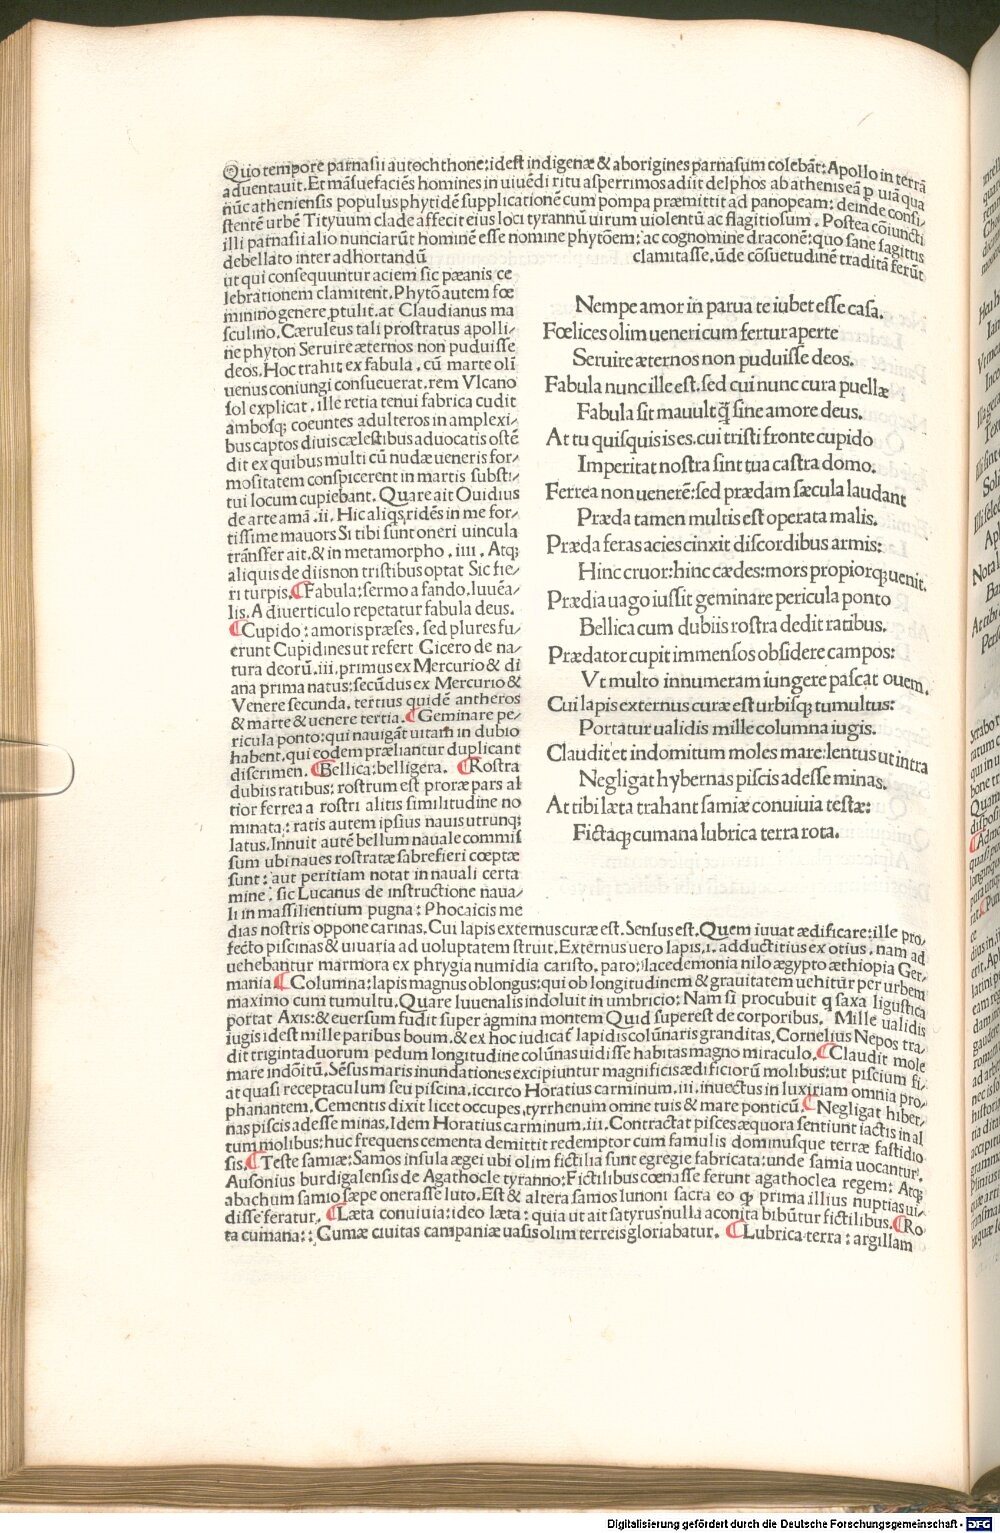 Quo tempore parnasii autochthone: idest indigenæ & aborigines parnasum colebāt: Apollo in terrā
aduentauit. Et māsuefaciēs homines in uiuēdi ritu asperrimos adiit delphos ab athenis eā ꝑ uiā qua
nūc atheniensis populus phyti dē supplicationē cum pompa præmittit ad panopeam: deinde consi/
stentē urbē Tityuum clade affecit eius loci tyrannū uirum uiolentū ac flagitiosum. Postea cōiuncti
illi parnasii alio nunciarūt hominē esse nomine phytōem: ac cognomine draconē: quo sane sagittis
debellato inter adhortandū clamitasse, ūde cōsuetudinē traditā ferūt
ut qui consequuntur aciem sic pæanis ce
lebrationem clamitent. Phytō autem fœ
minino genere ꝓtulit, at Claudianus ma
sculino. Cæruleus tali prostratus apolli/
ne phyton Seruire æternos non puduisse
deos. Hoc trahit ex fabula, cū marte oli
uenus coniungi consueuerat, rem Vlcano
sol explicat, ille retia tenui fabrica cudit
ambosq; coeuntes adulteros in amplexi/
bus captos diuis cælestibus aduocatis ostē
dit ex quibus multi cū nudæ ueneris for/
mositatem conspicerent in martis substi/
tui locum cupiebant. Quare ait Ouidius
de arte amā. ii. Hic aliqs ridēs in me for/
tissime mauors Si tibi sunt oneri uincula
trānsfer ait. & in metamorpho. iiii. Atq;
aliquis de diis non tristibus optat Sic fie/
ri turpis. ¶Fabula: sermo a fando. Iuuēa/
lis. A diuerticulo repetatur fabula deus.
¶Cupido: amoris præses. sed plures fu/
erunt Cupidines ut refert Cicero de na/
tura deorū. iii. primus ex Mercurio & di
ana prima natus: secūdus ex Mercurio &
Venere secunda, tertius quidē antheros
& marte & uenere tertia. ¶Geminare pe/
ricula ponto: qui nauigāt uitam in dubio
habent. qui eodem præliantur duplicant
discrimen. ¶Bellica: belligera. ¶Rostra
dubiis ratibus: rostrum est proræ pars al
tior ferrea a rostri alitis similitudine no
minata: ratis autem ipsius nauis utrunq;
latus. Innuit autē bellum nauale commis
sum ubi naues rostratæ fabrefieri cœptæ
sunt: aut peritiam notat in nauali certa
mine. sic Lucanus de instructione naua/
li in massilientium pugna: Phocaicis me
Nempe amor in parua te iubet esse casa.
Fœlices olim ueneri cum fertur aperte
Seruire æternos non puduisse deos.
Fabula nunc ille est. sed cui nunc cura puellæ
Fabula sit mauult q̄ sine amore deus.
At tu quisquis is es. cui tristi fronte cupido
Imperitat nostra sint tua castra domo.
Ferrea non uenerē: sed prædam sæcula laudant
Præda tamen multis est operata malis.
Præda feras acies cinxit discordibus armis:
Hinc cruor: hinc cædes: mors propiorq; uenit.
Prædia uago iussit geminare pericula ponto
Bellica cum dubiis rostra dedit ratibus.
Prædator cupit immensos obsidere campos:
Vt multo innumeram iungere pascat ouem.
Cui lapis externus curæ est urbisq; tumultus:
Portatur ualidis mille columna iugis.
Claudit et indomitum moles mare: lentus ut intra
Negligat hybernas piscis adesse minas.
At tibi læta trahant samiæ conuiuia testæ:
Fictaq; cumana lubrica terra rota.
dias nostris oppone carinas. Cui lapis externus curæ est. Sensus est. Quem iuuat ædificare: ille pro/
fecto piscinas & uiuaria ad uoluptatem struit. Externus uero lapis. i. adductitius ex otius. nam ad
uehebantur marmora ex phrygia numidia caristo. paro: lacedemonia nilo ægypto æthiopia Ger/
mania ¶Columna: lapis magnus oblongus: qui ob longitudinem & grauitatem uehitur per urbem
maximo cum tumultu. Quare Iuuenalis indoluit in umbricio: Nam si procubuit q saxa ligustica
portat Axis: & euersum fudit super agmina montem Quid superest de corporibus. Mille ualidis
iugis idest mille paribus boum. & ex hoc iudicat lapidis colūnaris granditas. Cornelius Nepos tra/
dit triginta duorum pedum longitudine colūnas uidisse habitas magno miraculo. ¶Claudit mole
mare indōitū. Sēsus maris inundationes excipiuntur magnificis ædificiorū molibus: ut piscium fi/
at quasi receptaculum seu piscina. iccirco Horatius carminum. iii. inuectus in luxuriam omnia pro/
phanantem. Cementis dixit licet occupes, tyrrhenum omne tuis & mare ponticū. ¶Negligat hiber/
nas piscis adesse minas. Idem Horatius carminum. iii. Contractat pisces æquora sentiunt iactis in al
tum molibus: huc frequens cementa demittit redemptor cum famulis dominusque terræ fastidio
sis. ¶Teste samiæ: Samos insula ægei ubi olim fictilia sunt egregie fabricata: unde samia uocantur.
Ausonius burdigalensis de Agathocle tyranno: Fictilibus cœnasse ferunt agathoclea regem: Atq;
abachum samio sæpe onerasse luto. Est & altera samos Iunoni sacra eo q; prima illius nuptias ui/
disse feratur. ¶Læta conuiuia: ideo læta: quia ut ait satyrus nulla aconita bibūtur fictilibus. ¶Ro
ta cumana: : Cumæ ciuitas campaniæ uasis olim terreis gloriabatur. ¶Lubrica terra: argillam
Digitalisierung gefördert durch die Deutsche Forschungsgemeinschaft - DFG